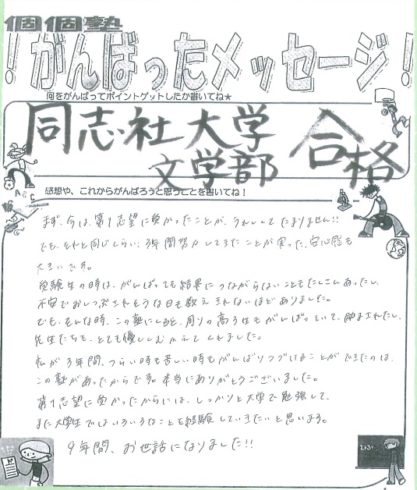 個個塾
！がんばったメッセージ！
何をがんばってポイントゲットしたか書いてね★
同志社大学
文学部
合格
感想や、これからがんばろうと思うことを書いてね！
まず、今は、第1志望に受かったことが、うれしくてたまりません!!
でも、それと同じくらい、3年間努力してきたことが実った、安心感も
大きいです。
受験生の時は、がんばっても結果につながらないこともたくさんあったし、
不安でおしつぶされそうな日も数えきれないほどありました。
でも、そんな時、この塾に来ると、周りの高3生もがんばっていて、励まされたし、
先生たちも、とても優しくむかえてくれました。
私が3年間、つらい時も苦しい時もがんばりつづけることができたのは、
この塾があったからです。本当にありがとうございました。
第1志望に受かったからには、しっかりと大学で勉強して、
また大学生ではいろいろなことを経験していきたいと思います。
9年間、お世話になりました!!